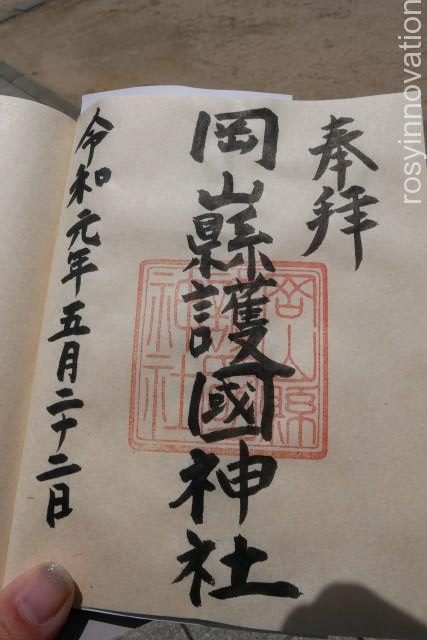 奉拝
岡山縣護國神社
岡山縣護國神社
令和元年五月二十二日
rosyinnovation